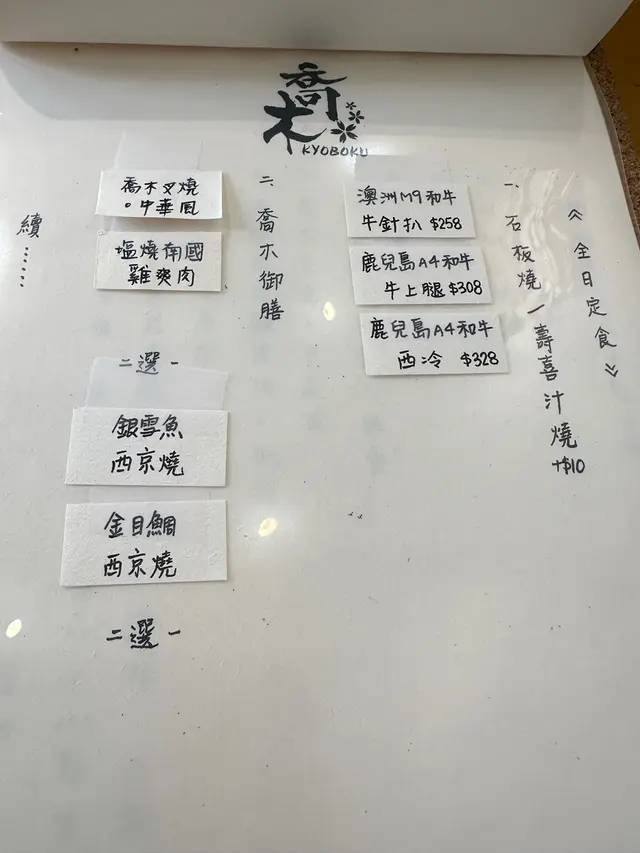 喬木
KYOBOKU
《全日定食》
一、石板燒/壽喜汁燒 +$10
澳洲M9和牛
牛針扒 $258
鹿兒島A4和牛
牛上腿 $308
鹿兒島A4和牛
西冷 $328
二、喬木御膳
喬木叉燒
。中華風
塩燒南國
雞爽肉
二選一
銀雪魚
西京燒
金目鯛
西京燒
二選一
續......